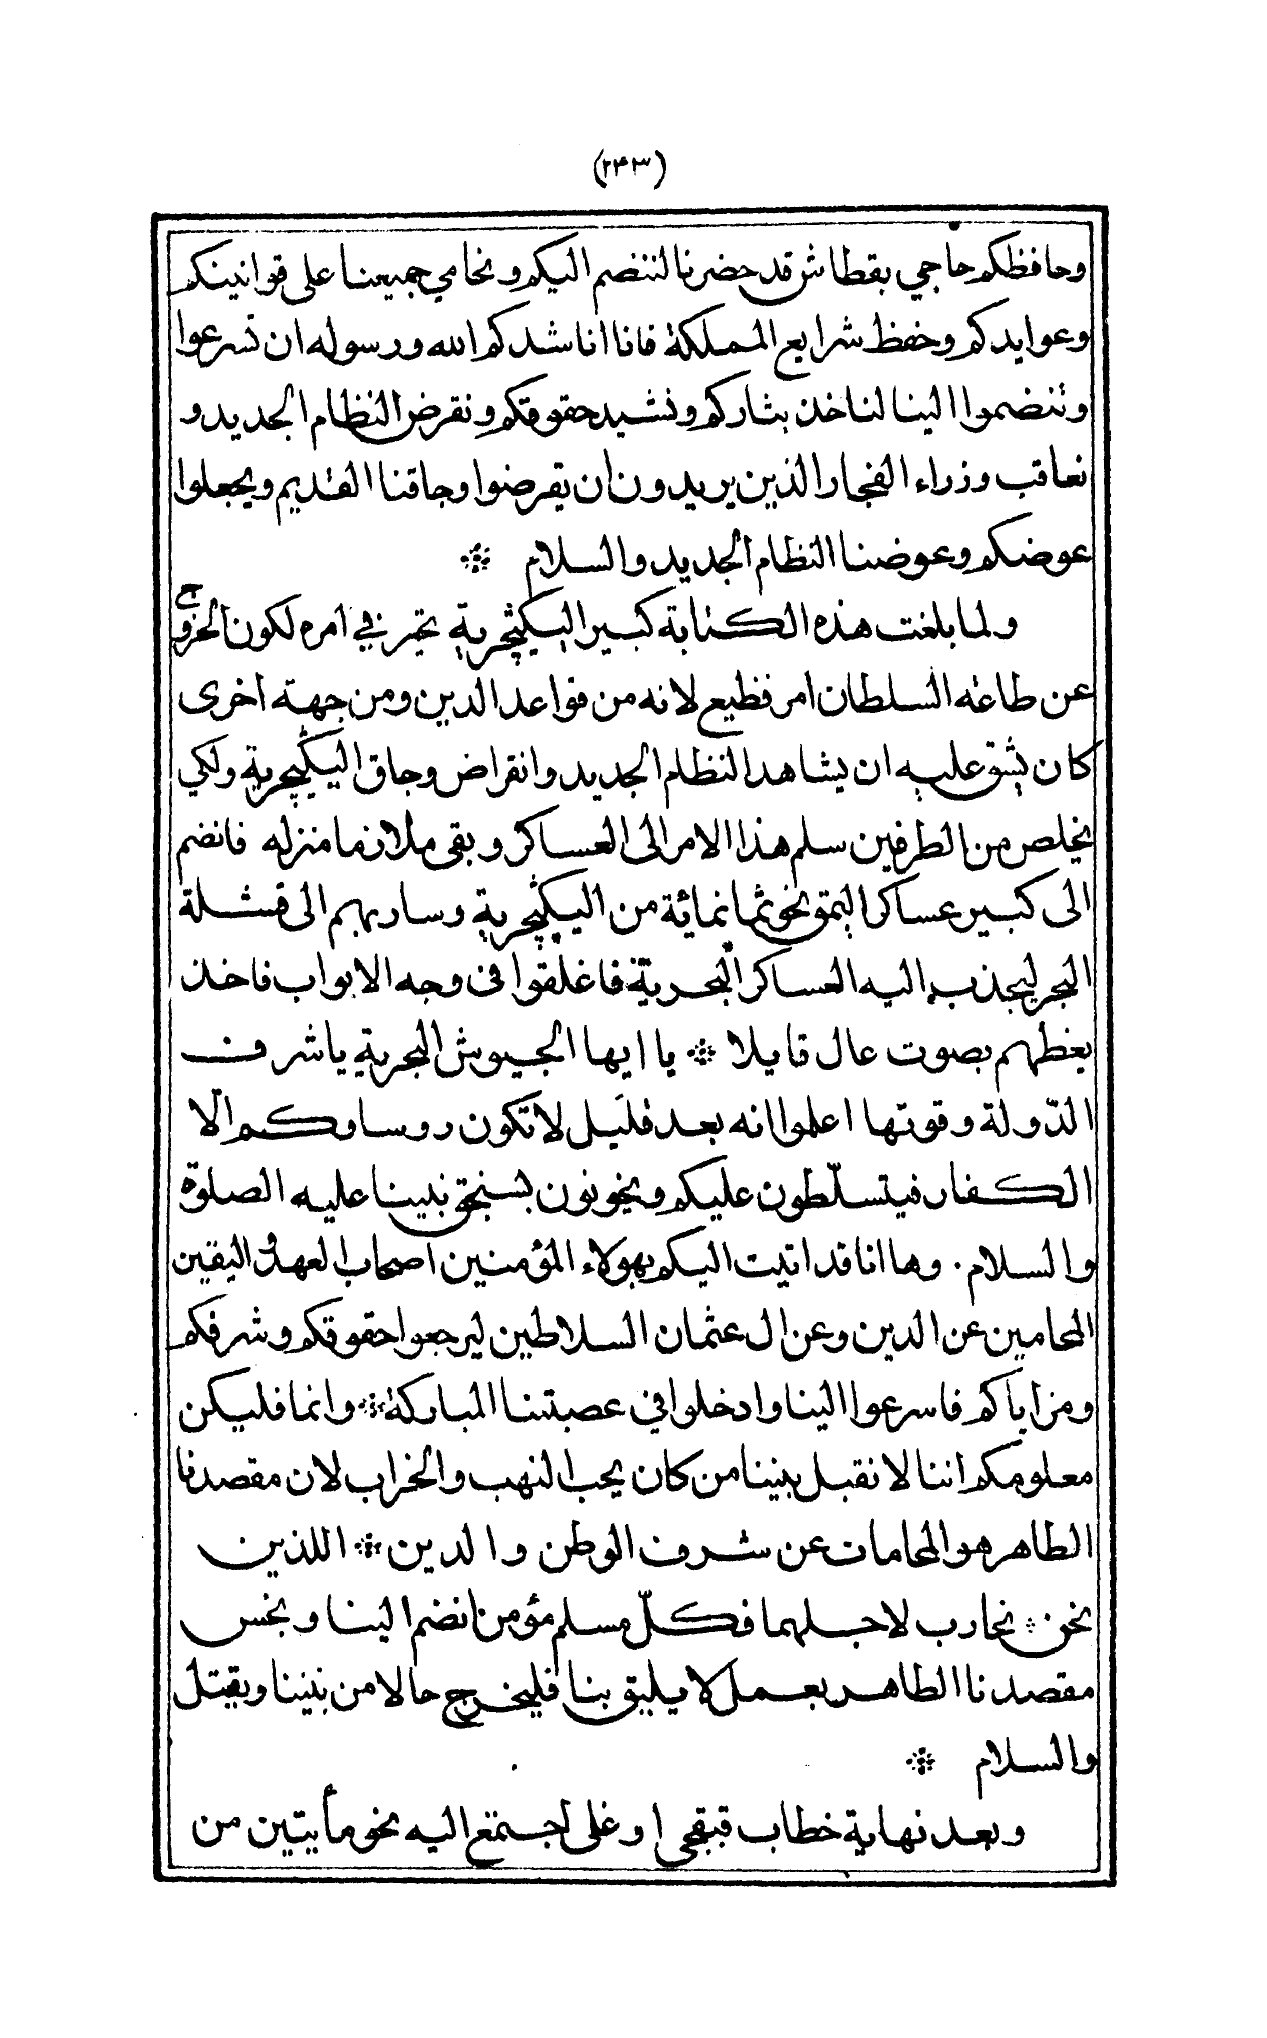 (٢٤٣)
وحافظكم حاجي بقطاش قد حضرنا لننضم اليكم ونحامي جميعنا على قوانينكم
وعوايدكم وحفظ شرايع المملكة فانا اناشدكم الله ورسوله ان تسرعوا
وتنضموا الينا لناخذ بثاركم ونشيد حقوقكم ونقرض النظام الجديد و
نعاقب وزراء الفجار الذين يريدون أن يقرضوا وجاقنا القديم ويجعلوا
عوضكم وعوضنا النظام الجديد والسلام ❊
ولما بلغت هذه الكتابة كبير اليكيچرية تحير في امره لكون الخروج
عن طاعة السلطان امر فظيع لانه من قواعد الدين ومن جهة اخرى
كان يشق عليه ان يشاهد النظام الجديد وانقراض وجاق اليكيچرية ولكي
يخلص من الطرفين سلم هذا الامر الى العساكر وبقى ملازما منزله فانضم
الى كبير عساكر اليمق نحو ثمانمائة من اليكيچرية وسار بهم الى قشلة
البحر ليجذب اليه العساكر البحرية فاغلقوا في وجهه الابواب فاخذ
يعظهم بصوت عال قايلا ❊ يا ايها الجيوش البحرية يا شرف
الدّولة وقوتها اعلموا انه بعد قليل لا تكون روساوكم الّا
الكفار فيتسلّطون عليكم ويخونون بسنجق نبينا عليه الصلوة
والسلام. وها انا قد اتيت اليكم بهولاء المؤمنين اصحاب العهد واليقين
المحامين عن الدين وعن ال عثمان السلاطين ليرجعوا حقوقكم وشرفكم
ومزاياكم فاسرعوا الينا وادخلوا في عصبتنا المباركة ❊ وانما فليكن
معلومكم اننا لا نقبل بيننا من كان يحب النهب والخراب لان مقصدنا
الطاهر هو المحامات عن شرف الوطن والدين ❊ اللذين
نحن نحارب لاجلهما فكلّ مسلم مؤمن انضم الينا وبخس
مقصدنا الطاهر بعمل لا يليق بنا فليخرج حالا من بيننا ويقتل
والسلام ❊
وبعد نهاية خطاب قبقجي اوغلى اجتمع اليه نحو مأيتين من